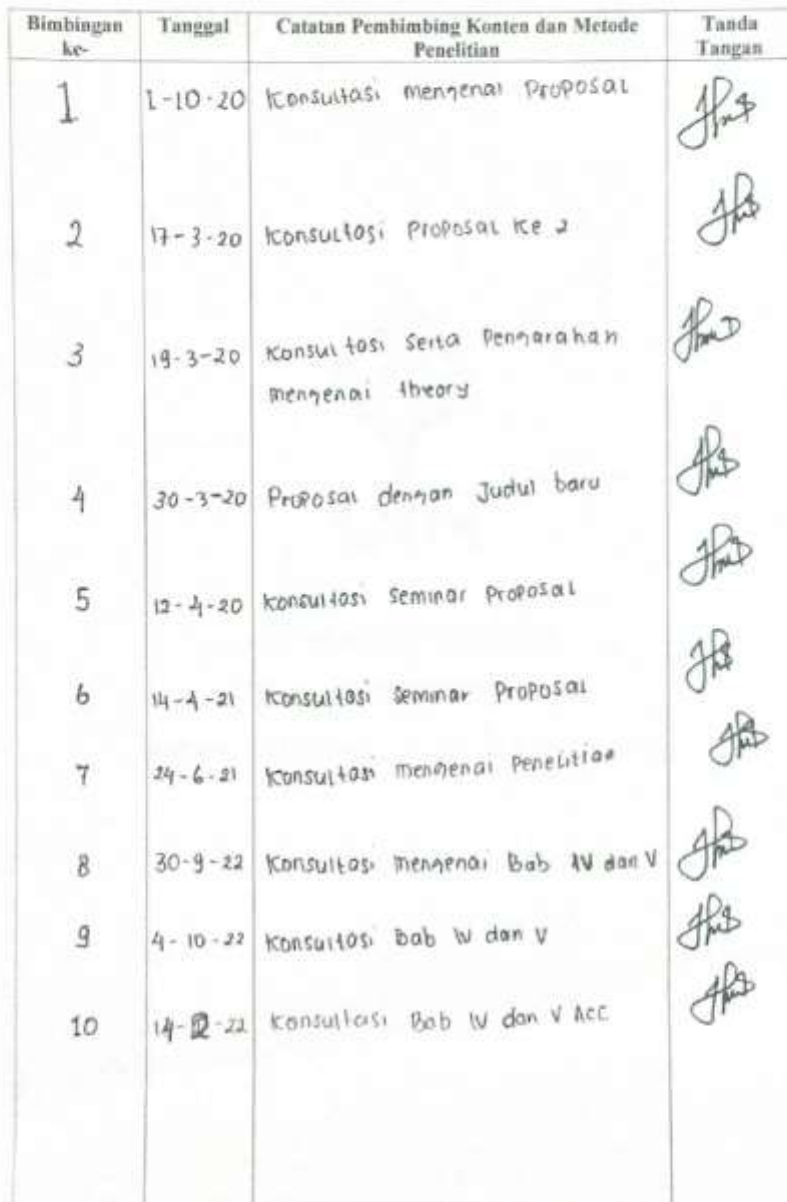 Bimbingan ke- Tanggal Catatan Pembimbing Konten dan Metode Penelitian Tanda Tangan
1 1-10-20 Konsultasi mengenai Proposal
2 17-3-20 Konsultasi Proposal Ke 2
3 19-3-20 Konsultasi Serta Pengarahan
mengenai theory
4 30-3-20 Proposal dengan Judul baru
5 12-4-20 Konsultasi Seminar Proposal
6 14-4-21 Konsultasi Seminar Proposal
7 24-6-21 Konsultasi mengenai Penelitian
8 30-9-22 Konsultasi mengenai Bab IV dan V
9 4-10-22 Konsultasi Bab IV dan V
10 14- -22 Konsultasi Bab IV dan V ACC